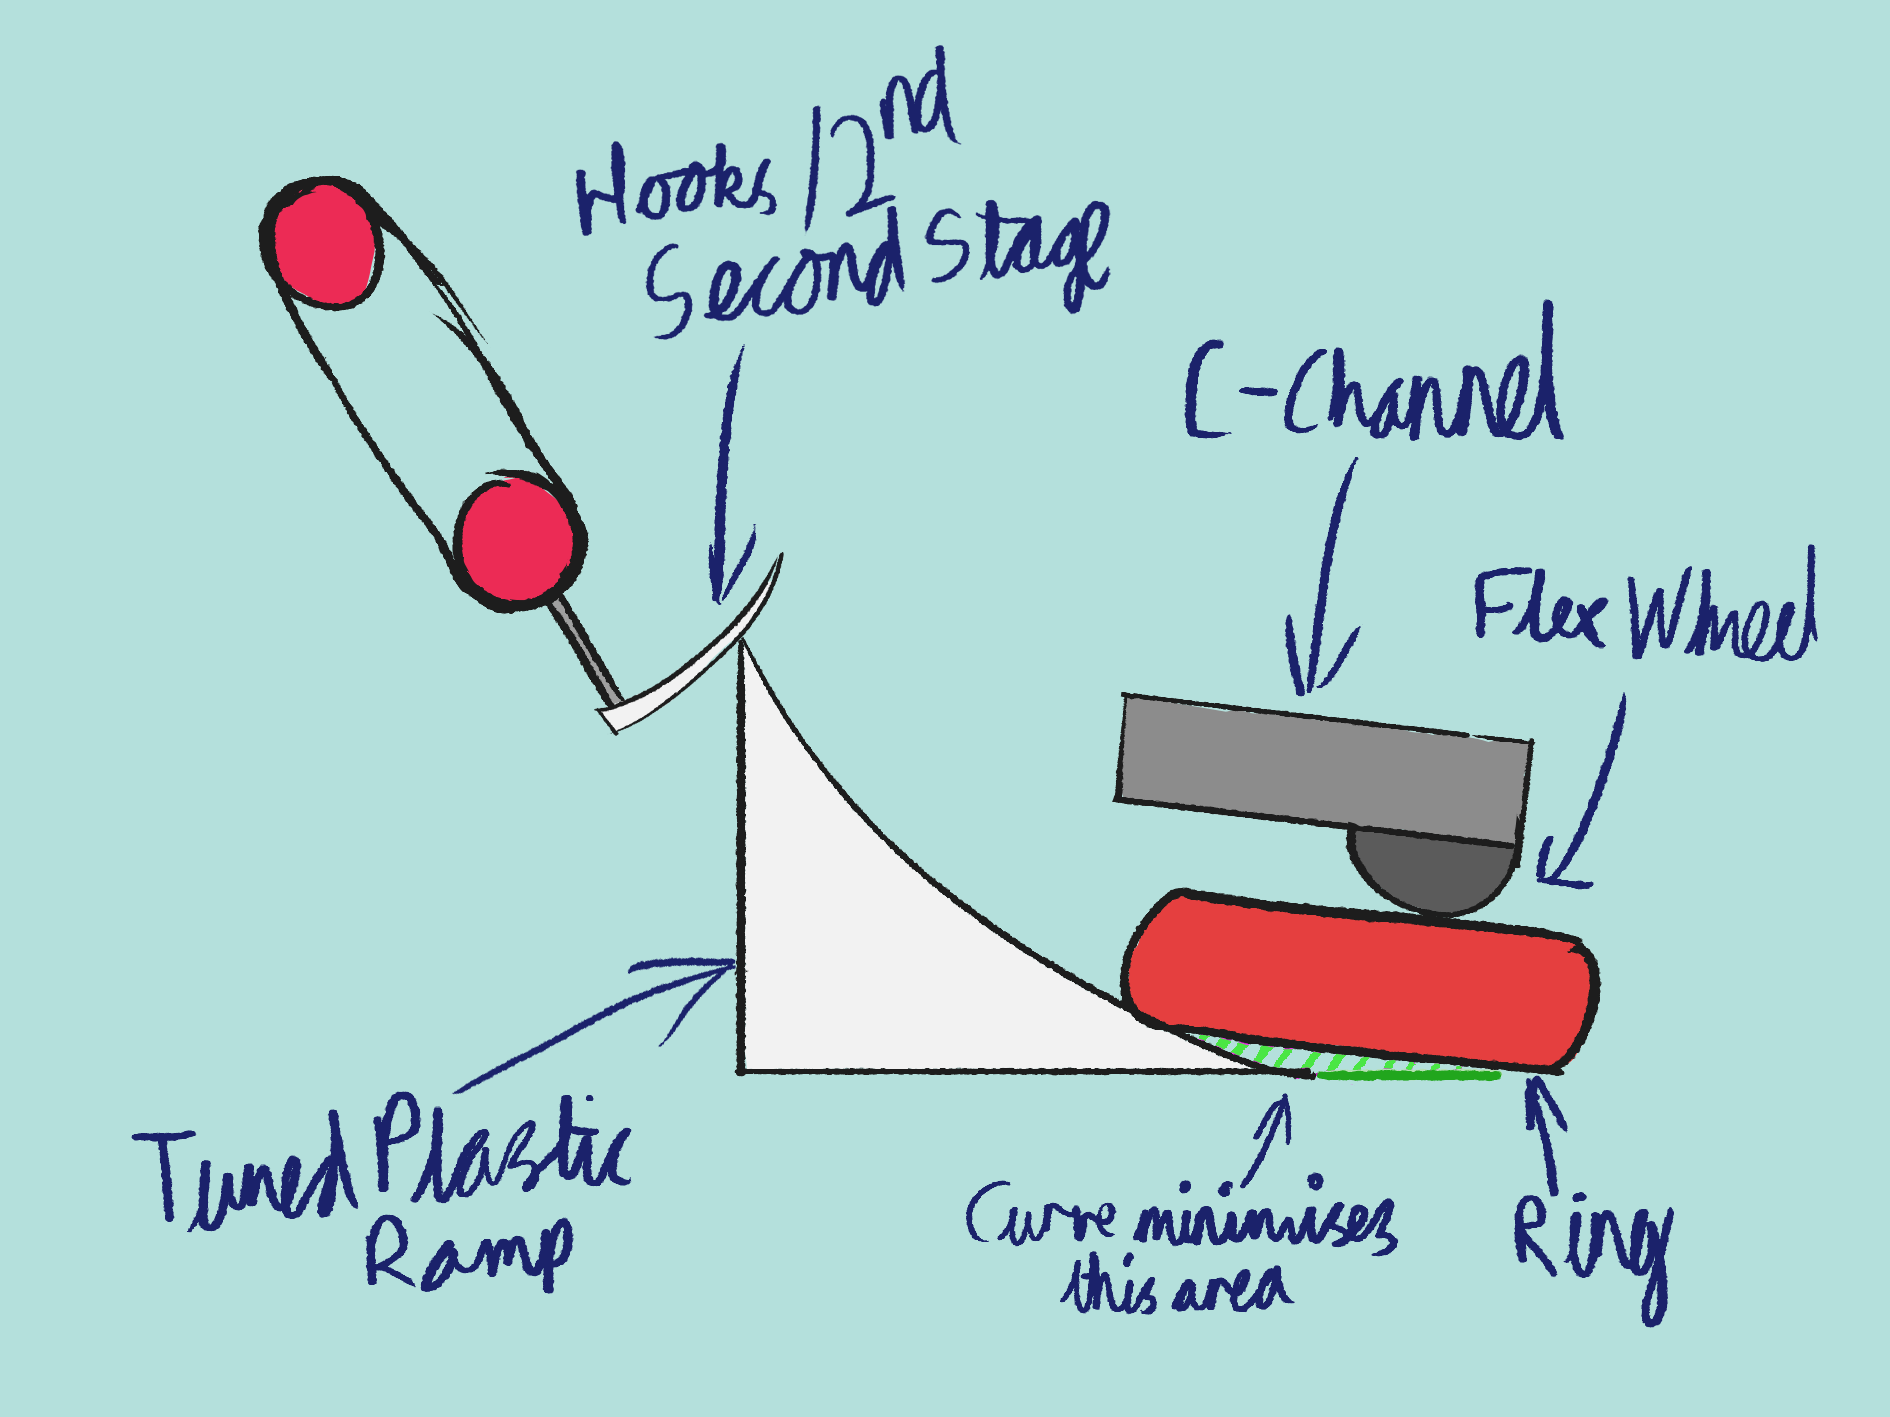 Hooks / 2nd
Second Stage
C-Channel
Flex Wheel
Tuned Plastic
Ramp
Curve minimises
this area
Ring